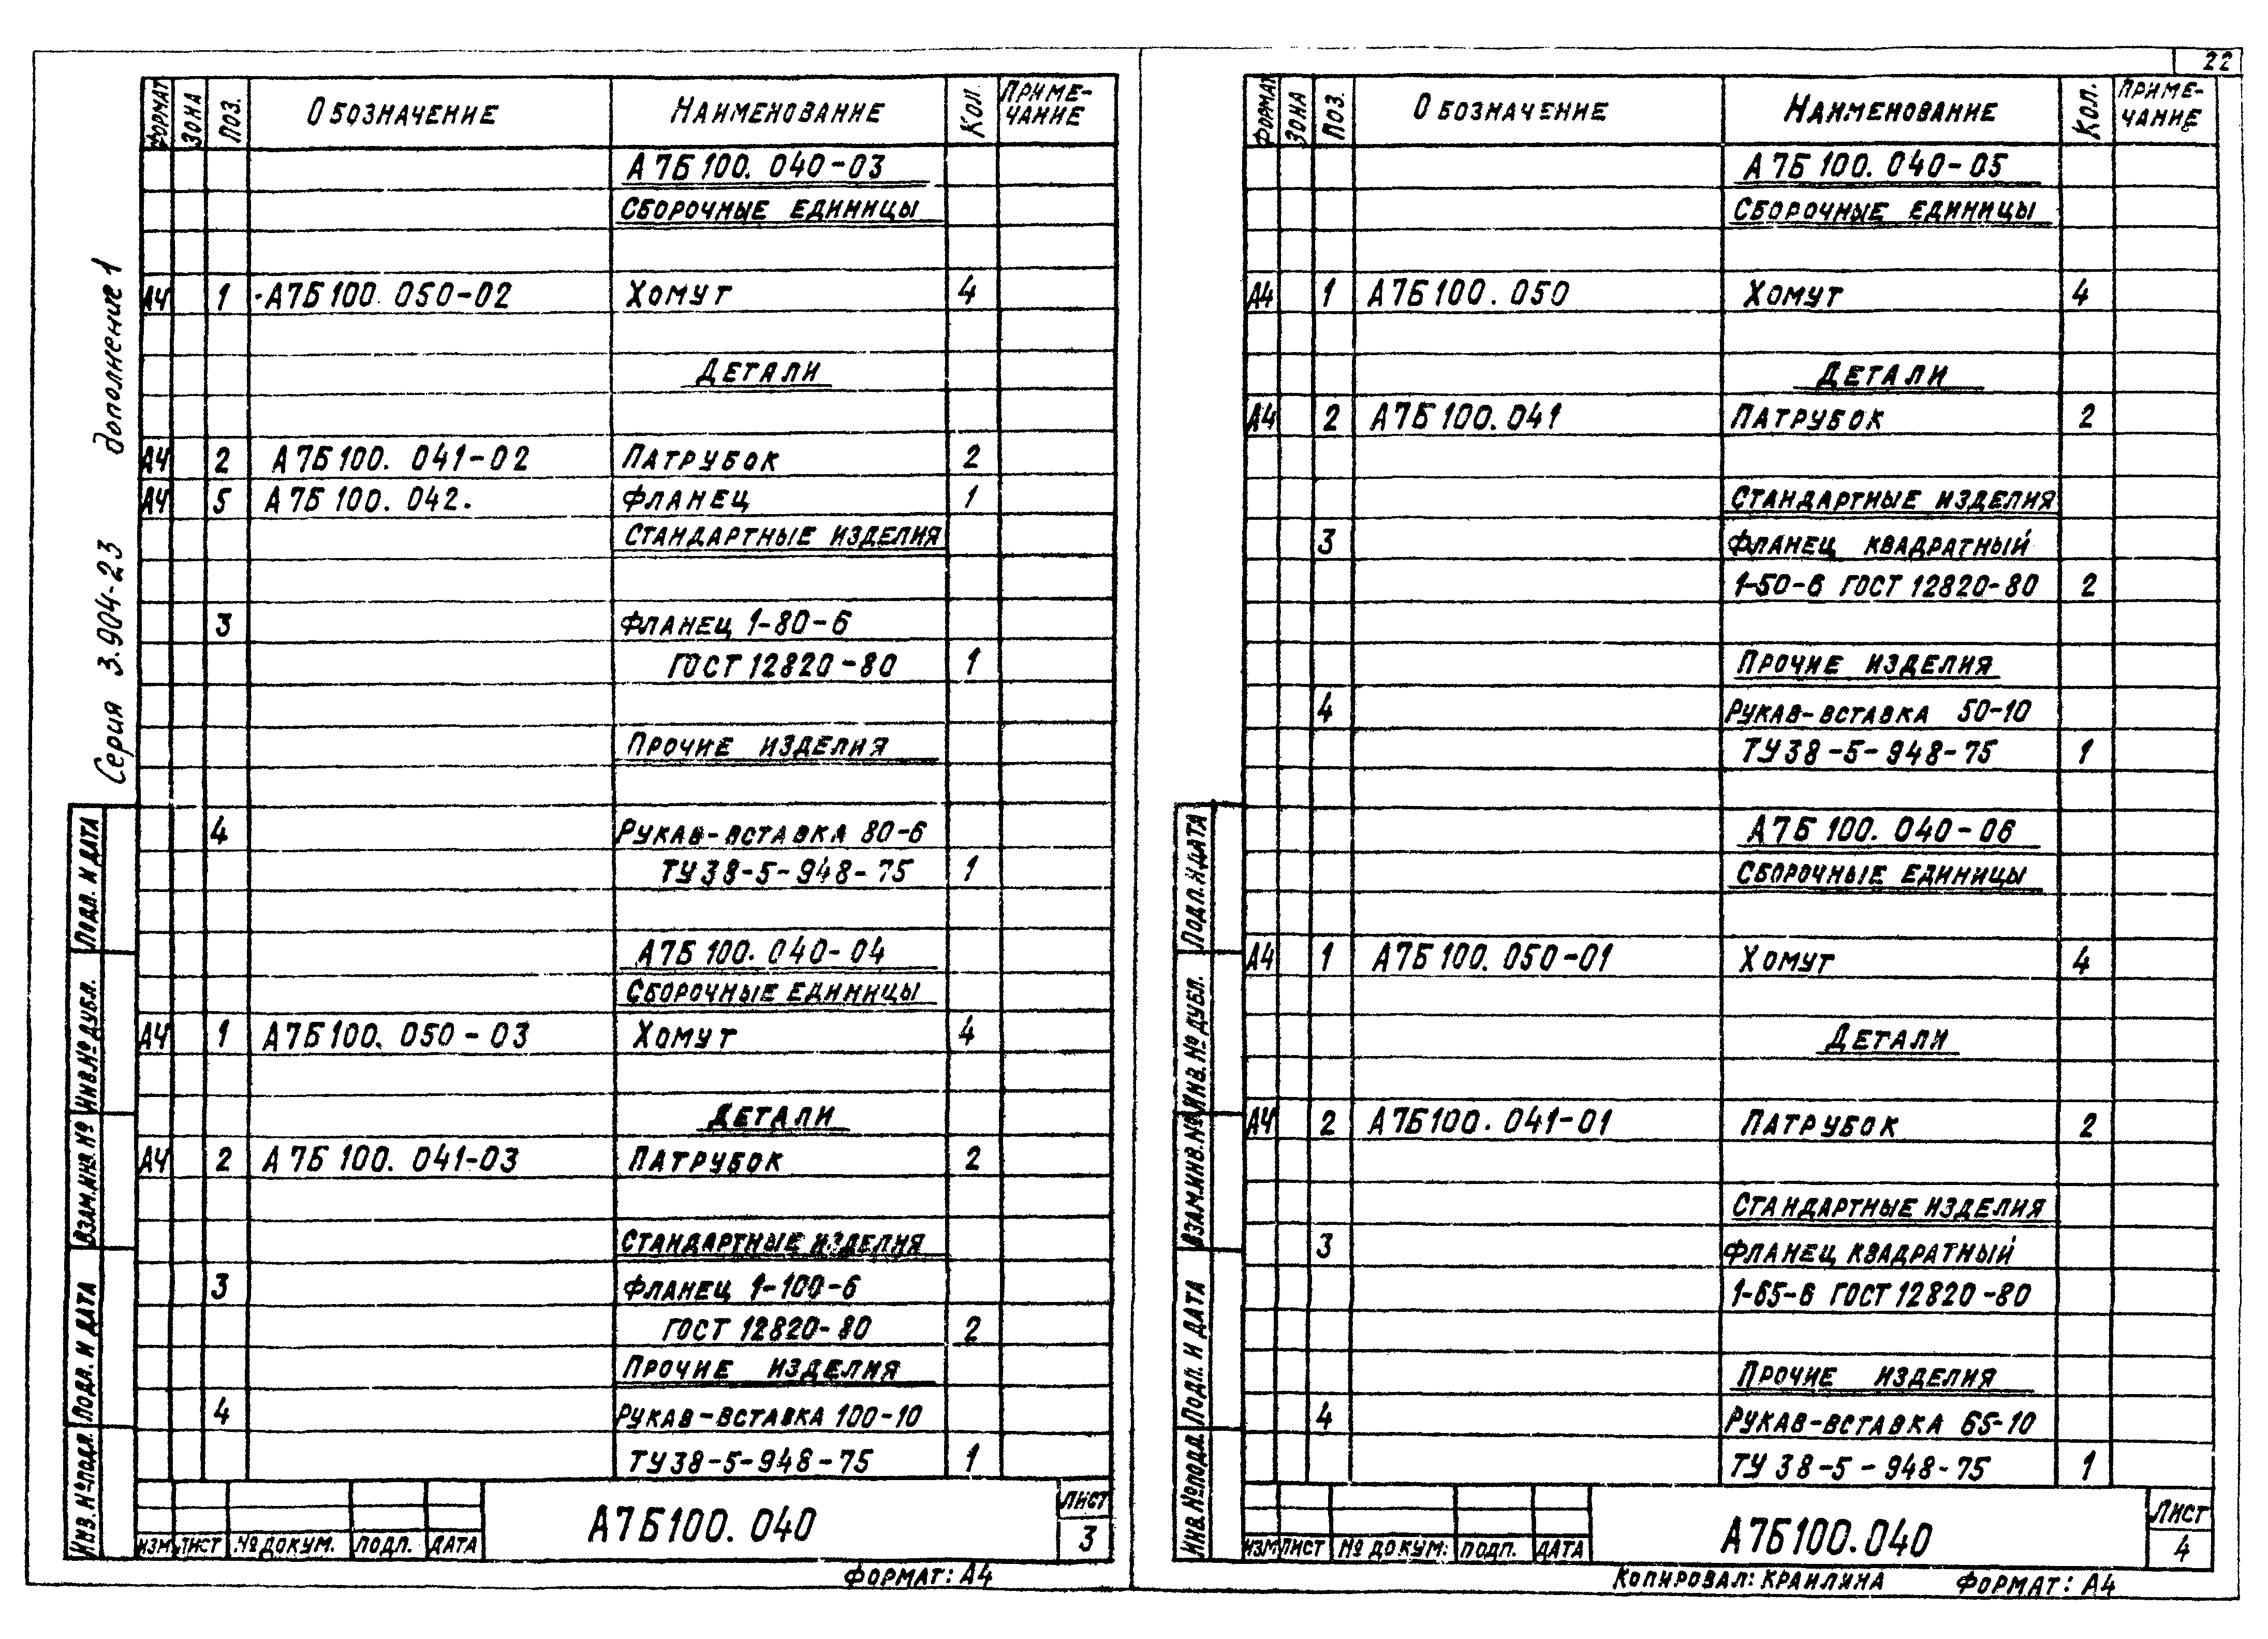 22
Серия 3.904-23 дополнение 1
Формат Зона Поз. Обозначение Наименование Кол. Приме-
чание
А7Б100.040-03
Сборочные единицы
А4 1 А7Б100.050-02 Хомут 4
Детали
А4 2 А7Б100.041-02 Патрубок 2
А4 5 А7Б100.042. Фланец 1
Стандартные изделия
3 Фланец 1-80-6
ГОСТ 12820-80 1
Прочие изделия
4 Рукав-вставка 80-6
ТУ38-5-948-75 1
А7Б100.040-04
Сборочные единицы
А4 1 А7Б100.050-03 Хомут 4
Детали
А4 2 А7Б100.041-03 Патрубок 2
Стандартные изделия
3 Фланец 1-100-6
ГОСТ 12820-80 2
Прочие изделия
4 Рукав-вставка 100-10
ТУ38-5-948-75 1
Подп. и дата
Инв.№ дубл.
Взам.инв.№
Подп. и дата
Инв.№подл.
Изм Лист № докум. Подп. Дата
А7Б100.040
Лист
3
Формат: А4
Формат Зона Поз. Обозначение Наименование Кол. Приме-
чание
А7Б100.040-05
Сборочные единицы
А4 1 А7Б100.050 Хомут 4
Детали
А4 2 А7Б100.041 Патрубок 2
Стандартные изделия
3 Фланец квадратный
1-50-6 ГОСТ 12820-80 2
Прочие изделия
4 Рукав-вставка 50-10
ТУ38-5-948-75 1
А7Б100.040-06
Сборочные единицы
А4 1 А7Б100.050-01 Хомут 4
Детали
А4 2 А7Б100.041-01 Патрубок 2
Стандартные изделия
3 Фланец квадратный
1-65-6 ГОСТ 12820-80
Прочие изделия
4 Рукав-вставка 65-10
ТУ38-5-948-75 1
Подп.и дата
Инв.№ дубл.
Взам.инв.№
Подп. и дата
Инв.№подл.
Изм Лист № докум. Подп. Дата
А7Б100.040
Лист
4
Копировал: Краилина Формат: А4